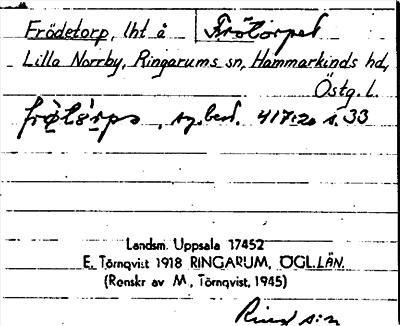 Frödetorp, lht å Frötorpet
Lilla Norrby, Ringarums sn, Hammarkinds hd,
Östg. l.
sg. best. 417:20 s. 33
Landsm. Uppsala 17452
E. Törnqvist 1918 RINGARUM, ÖGL.LÄN.
(Renskr av M. Törnqvist, 1945)
s:n